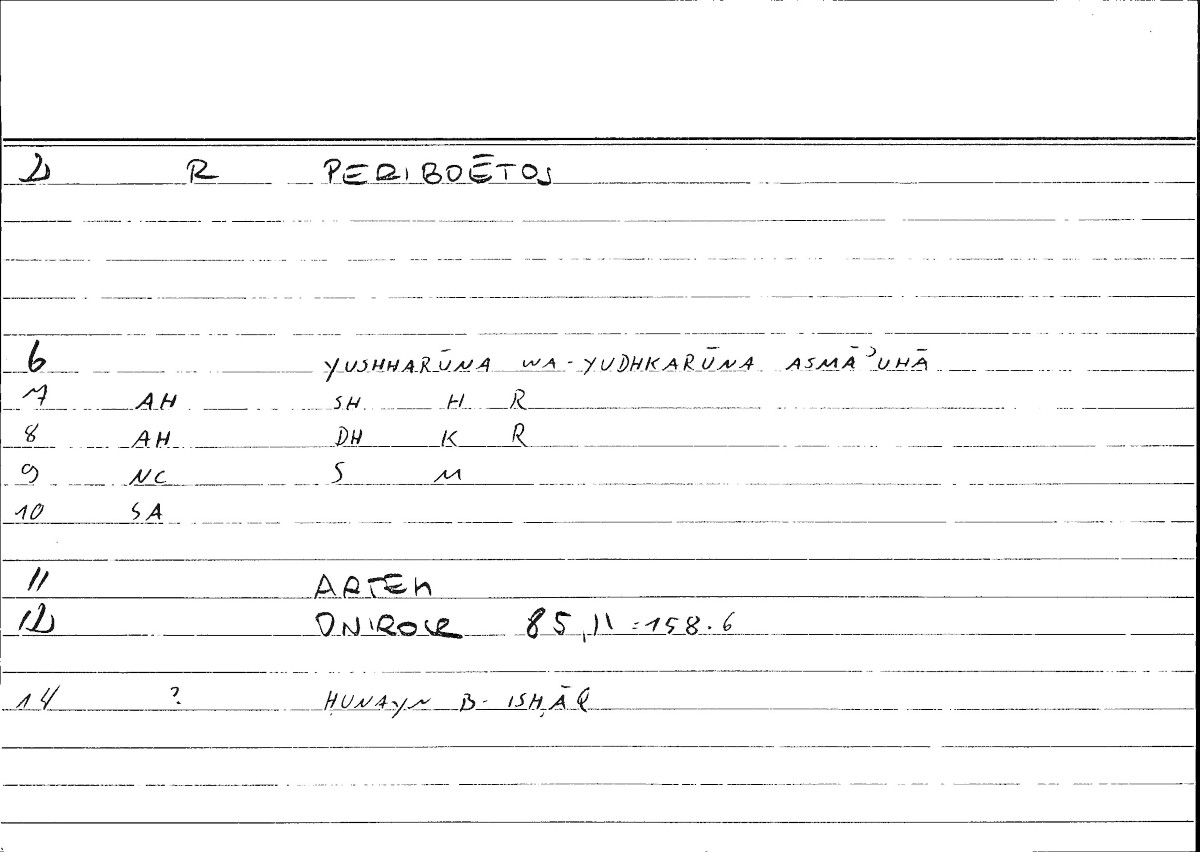 2 R PERIBOĒTOS
6 YUSHHARŪNA WA-YUDHKARŪNA ASMĀʾUHĀ
7 AH SH H R
8 AH DH K R
9 NC S M
10 SA
11 ARTEM
12 ONIROCR 85,11=158.6
14 ? ḤUNAYN B. ISḤĀQ